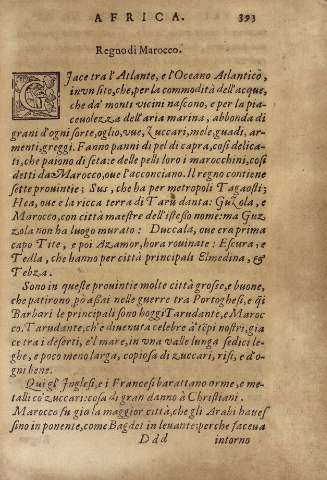 AFRICA. 393
Regno di Marocco.
GIace tra l'Atlante, e l'Oceano Atlantico,
in vn sito, che, per la commodità dell'acque,
che da' monti vicini nascono, e per la pia-
ceuolezza dell'aria marina, abbonda di
grani d'ogni sorte, oglio, vue, Zuccari, mele, guadi, ar-
menti, greggi. Fanno panni di pel di capra, cosi delica-
ti, che paiono di seta: delle pelli loro i marocchini, cosi
detti da Marocco, oue l'acconciano. Il regno contiene
sette prouintie; Sus, che ha per metropoli Tagaost;
Hea, oue e la ricca terra di Tarudanta: Guzola, e
Morocco, con città maestre dell'istesso nome: ma Guz
zola non ha luogo murato: Duccala, oue era prima
capo Tite, e poi Azamor, hora rouinate: Escura; e
Tedla, che hanno per città principali Elmedina, &
Tebza.
Sono in queste prouintie molte città grosse, e buone,
che patirono pò assai nelle guerre tra Portoghesi, e q̃i
Barbari le principali sono hoggi Tarudante, e Maroc
co. Tarudante, ch'e diuenuta celebre à tẽpi nostri, gia
ce tra i deserti, e'l mare, in vna valle lunga sedici le-
ghe, e poco meno larga, copiosa di zuccari, risi, e d'o-
gni bene.
Qui gl' Inglesi, e i Francesi barattano arme, e me-
talli cõ zuccari: cosa di gran danno à Christiani.
Marocco fu gia la maggior città, che gli Arabi haues
sino in ponente, come Bagdet in leuante: perche faceua
Ddd intorno